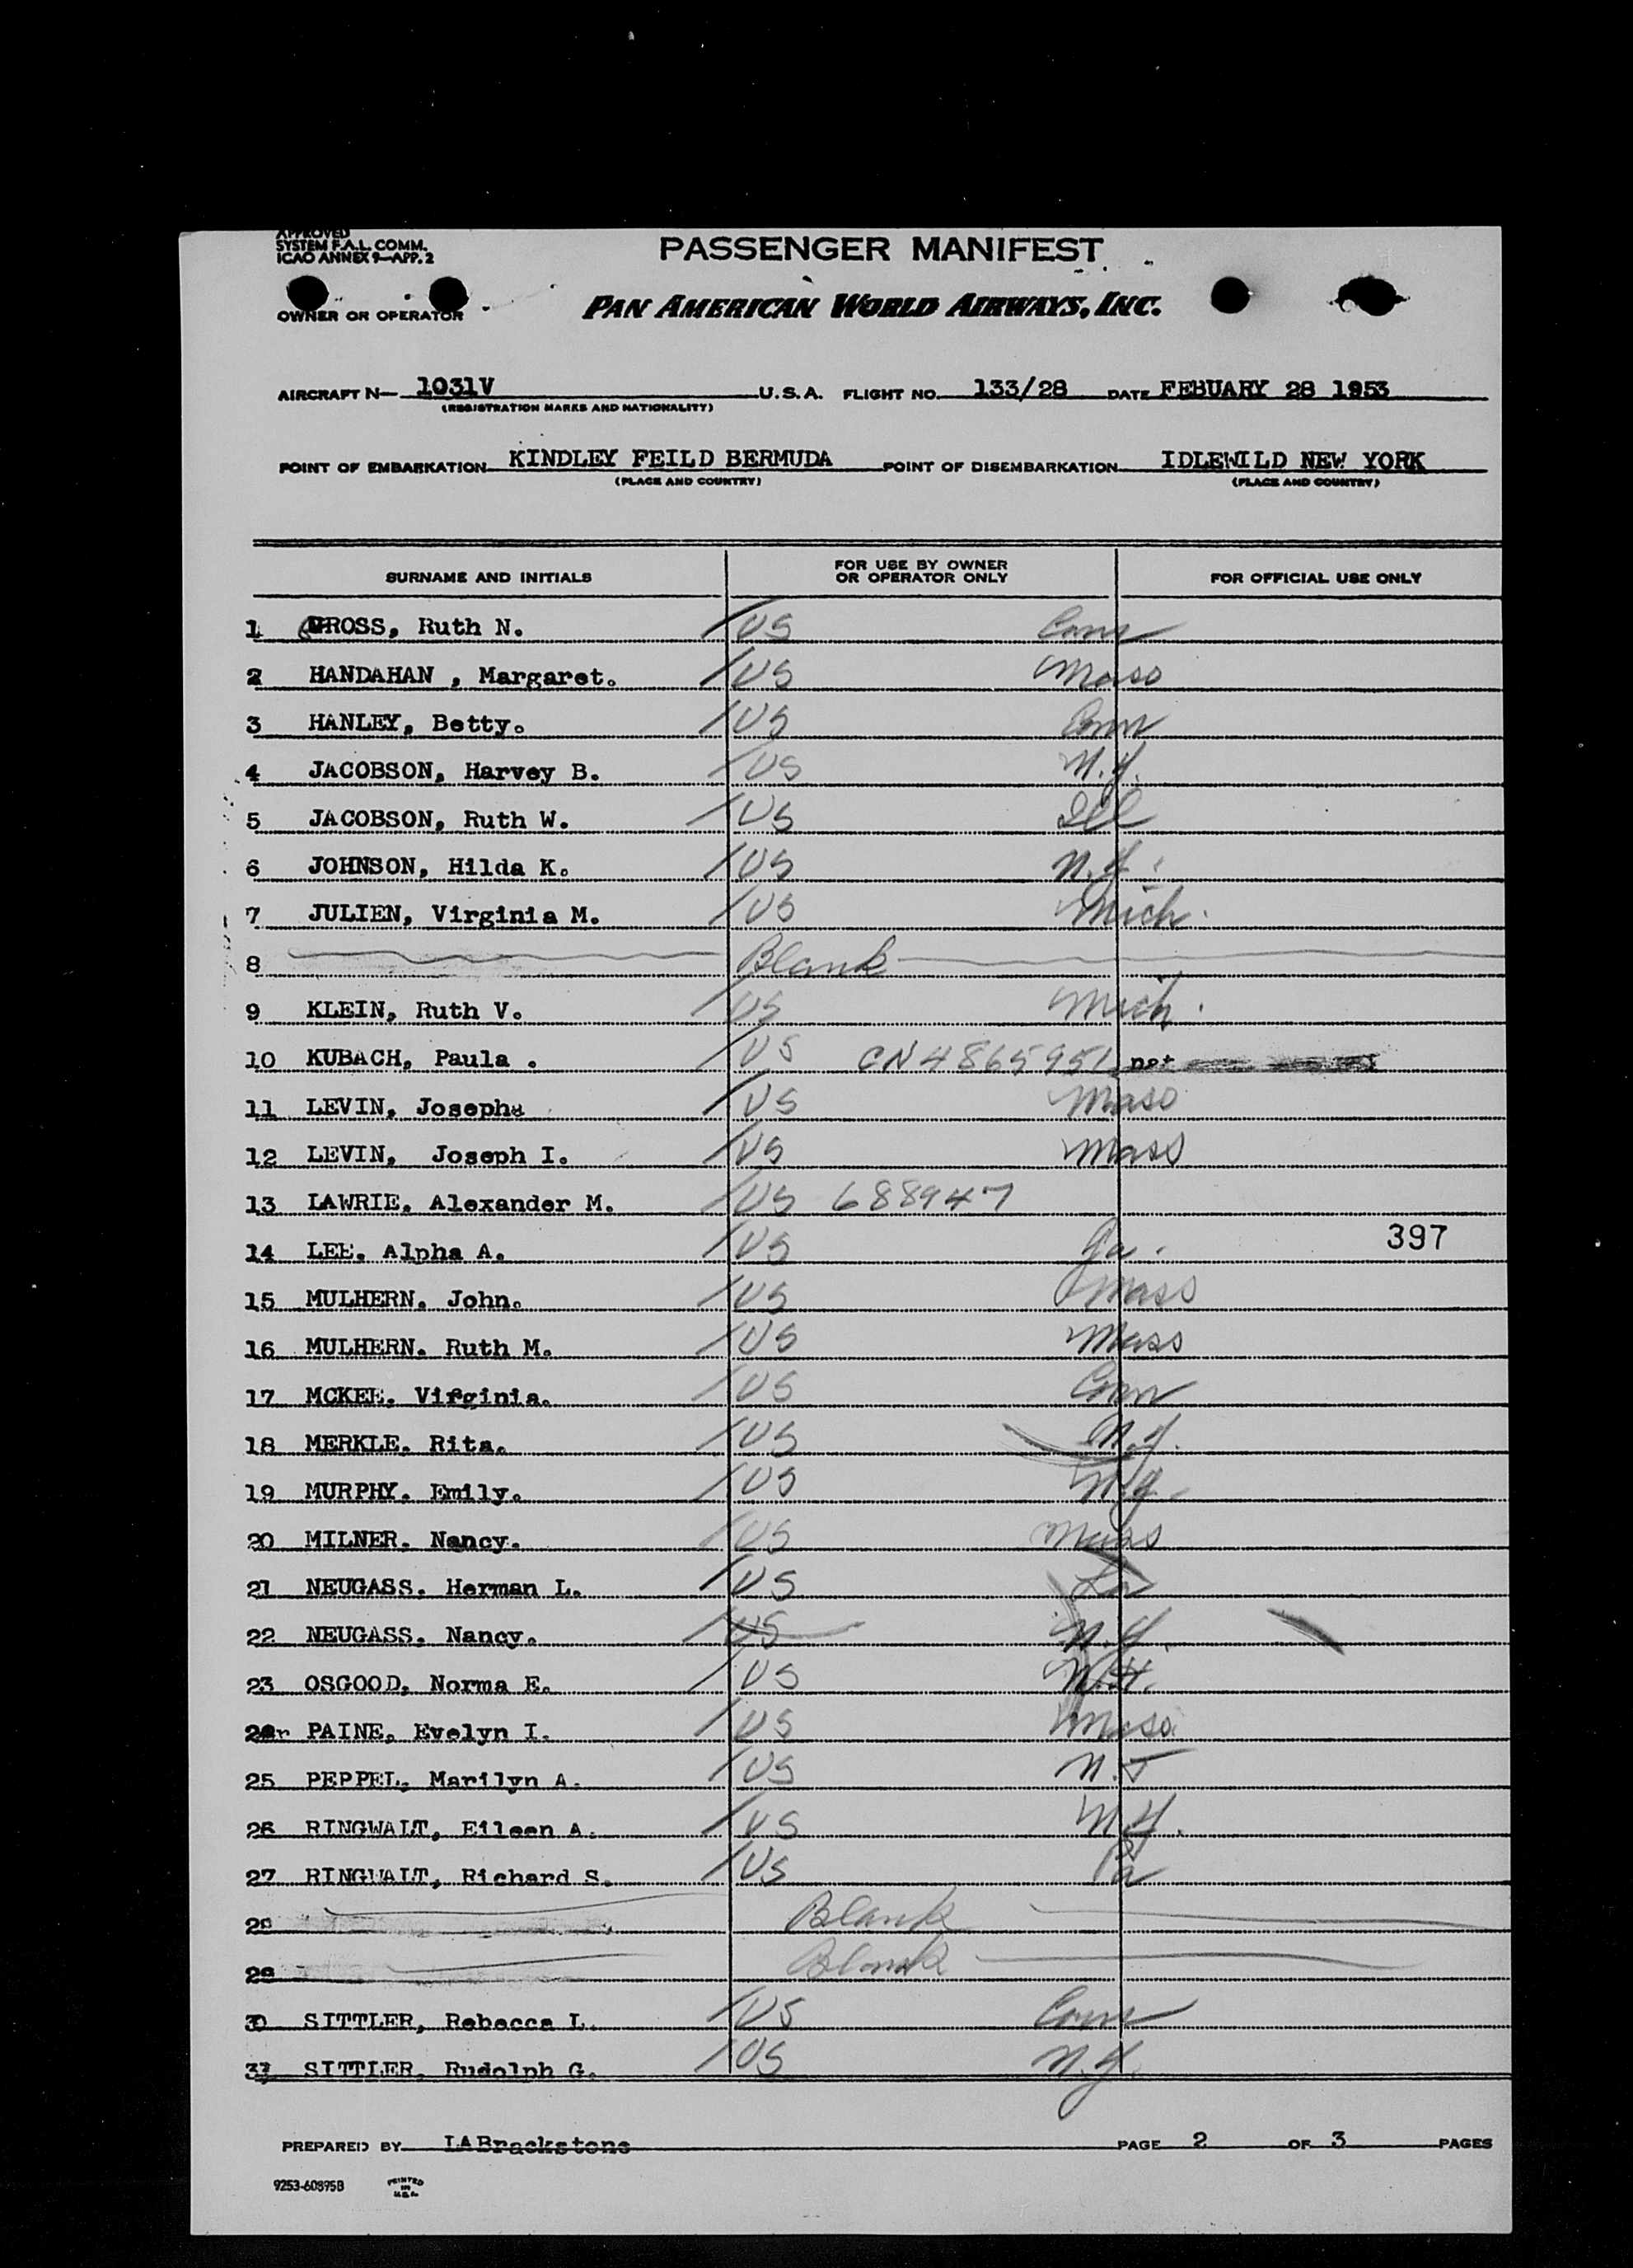 APPROVED
SYSTEM F.A.L. COMM.
ICAO ANNEX 9—APP. 2
PASSENGER MANIFEST
OWNER OR OPERATOR
PAN AMERICAN WORLD AIRWAYS, INC.
AIRCRAFT N— 1031V U.S.A. FLIGHT NO. 133/28 DATE FEBUARY 28 1953
(REGISTRATION MARKS AND NATIONALITY)
POINT OF EMBARKATION KINDLEY FEILD BERMUDA POINT OF DISEMBARKATION IDLEWILD NEW YORK
(PLACE AND COUNTRY) (PLACE AND COUNTRY)
SURNAME AND INITIALS FOR USE BY OWNER OR OPERATOR ONLY FOR OFFICIAL USE ONLY
1 GROSS, Ruth N. US Conn
2 HANDAHAN , Margaret. US Mass
3 HANLEY, Betty. US Conn
4 JACOBSON, Harvey B. US N.Y.
5 JACOBSON, Ruth W. US Ill
6 JOHNSON, Hilda K. US N.Y.
7 JULIEN, Virginia M. US Mich.
8 Blank
9 KLEIN, Ruth V. US Mich.
10 KUBACH, Paula . US CN 4865951 net
11 LEVIN, Josepha US Mass
12 LEVIN, Joseph I. US Mass
13 LAWRIE, Alexander M. US 688947
14 LEE. Alpha A. US Ga. 397
15 MULHERN. John. US Mass
16 MULHERN. Ruth M. US Mass
17 MCKEE. Virginia. US Conn
18 MERKLE. Rita. US N.Y.
19 MURPHY. Emily. US N.Y.
20 MILNER. Nancy. US Mass
21 NEUGASS. Herman L. US La
22 NEUGASS. Nancy. US N.Y.
23 OSGOOD, Norma E. US N.H.
24 PAINE, Evelyn I. US Mass
25 PEPPEL, Marilyn A. US N.J
26 RINGWALT, Eileen A. US N.Y.
27 RINGWALT, Richard S. US Pa
28 Blank
29 Blank
30 SITTLER, Rebecca L. US Conn
31 SITTLER, Rudolph G. US N.Y.
PREPARED BY LABrackstone PAGE 2 OF 3 PAGES
9253-60895B PRINTED IN U.S.A.